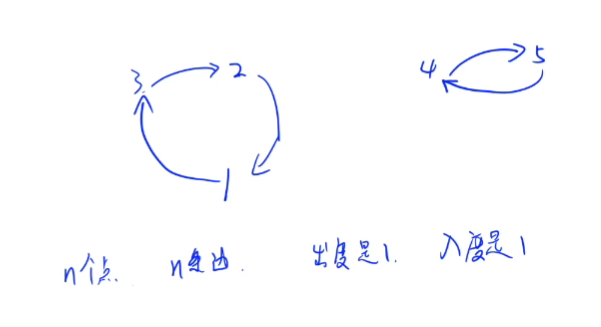 3. 2 4 5
1
n个点. n条边. 出度是1. 入度是1